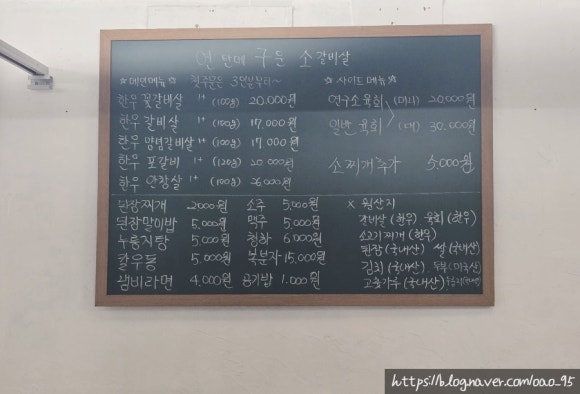 연탄에 구운 소갈비살
☆메인메뉴☆ 첫주문은 3인분부터~
한우 꽃갈비살 1+ (100g) 20,000원
한우 갈비살 1+ (100g) 17,000원
한우 양념갈비살 1+ (100g) 17,000원
한우 포갈비 1+ (120g) 20,000원
한우 안창살 1+ (100g) 26,000원
☆사이드 메뉴☆
연구소육회 (미니) 20,000원
일반 육회 (대) 30,000원
소찌개추가 5,000원
된장찌개 2000원 소주 5,000원
된장말이밥 5,000원 맥주 5,000원
누룽지탕 5,000원 청하 6,000원
칼우동 5,000원 복분자 15,000원
냄비라면 4,000원 공기밥 1,000원
x 원산지
갈비살 (한우) 육회 (한우)
소고기찌개 (한우)
된장 (국내산) 쌀 (국내산)
김치 (국내산) 두부 (미국산)
고춧가루 (국내산)
https://blog.naver.com/oao_95